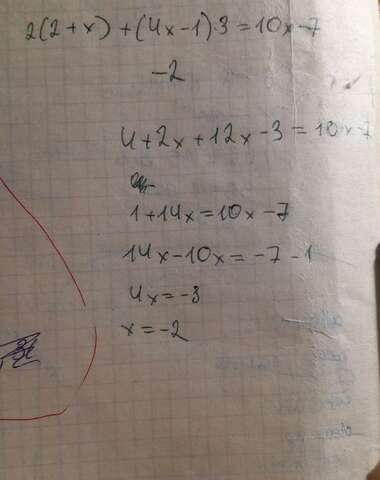 2(2+x)+(4x-1)·3=10x-7
-2
4+2x+12x-3=10x-7
1+14x=10x-7
14x-10x=-7-1
4x=-8
x=-2